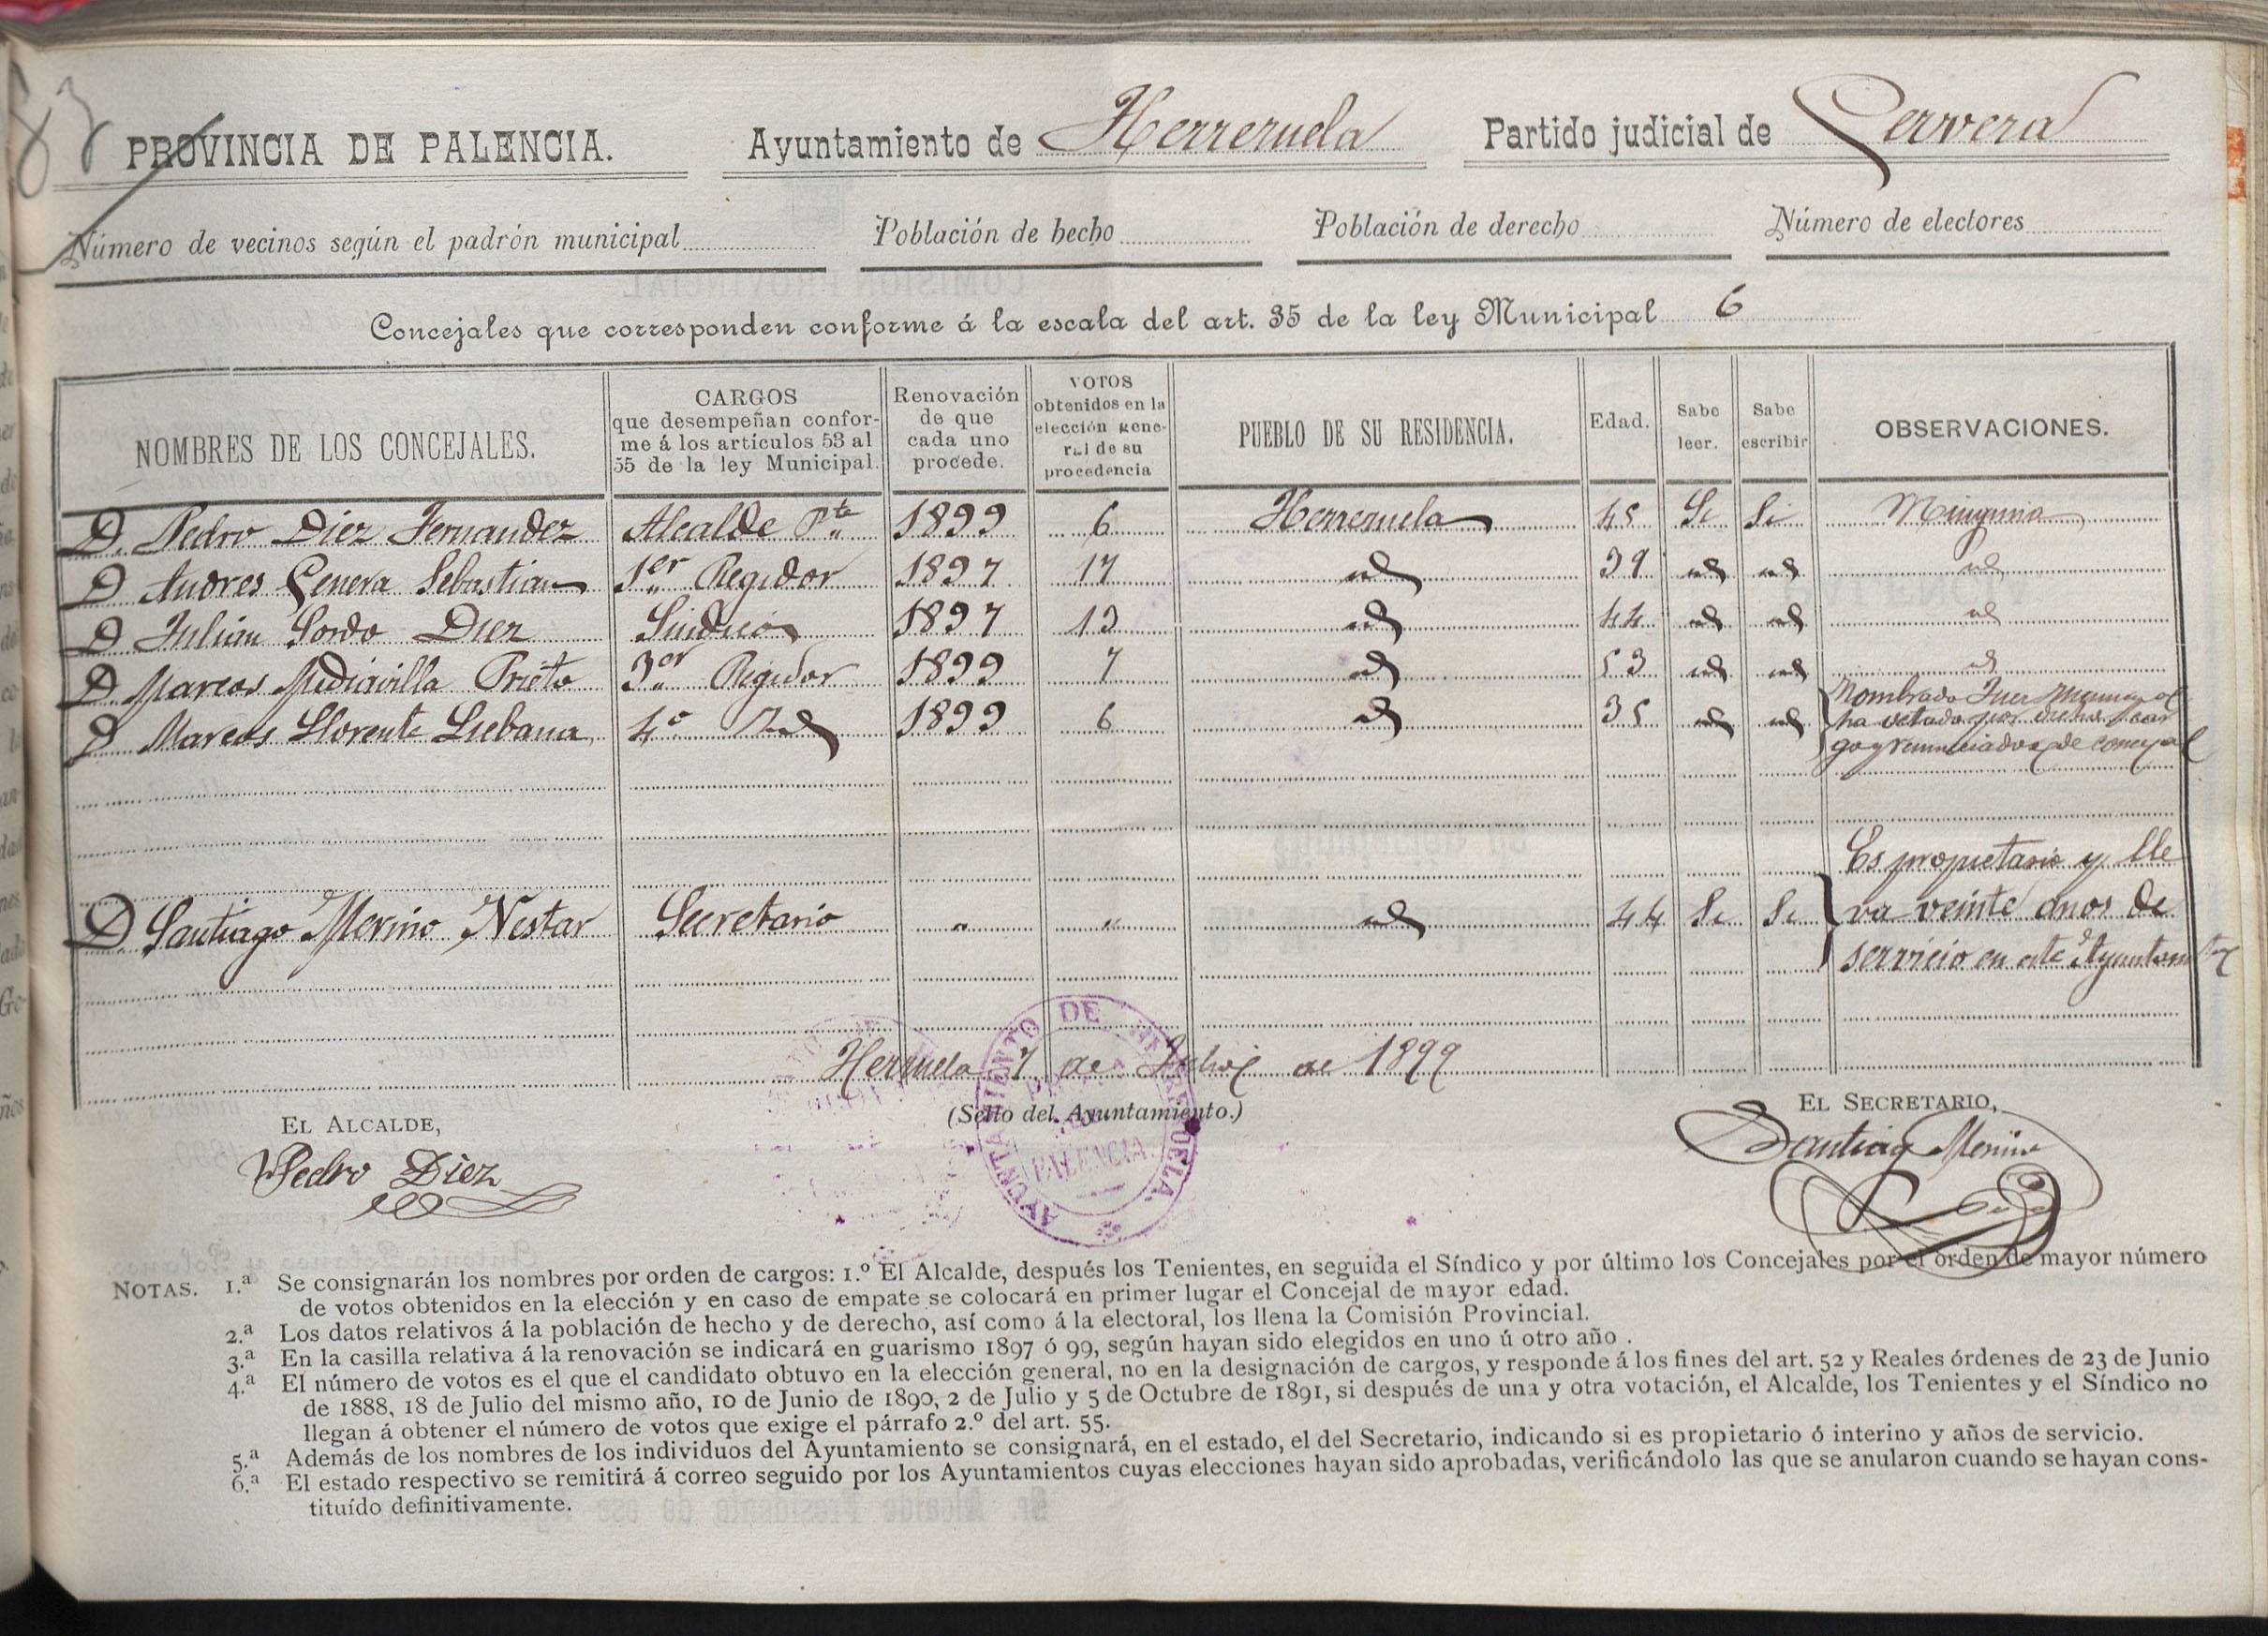 83
PROVINCIA DE PALENCIA. Ayuntamiento de Herreruela Partido judicial de Cervera
Número de vecinos según el padrón municipal Población de hecho Población de derecho Número de electores
Concejales que corresponden conforme á la escala del art. 35 de la ley Municipal 6
NOMBRES DE LOS CONCEJALES. CARGOS que desempeñan conforme á los artículos 53 al 55 de la ley Municipal. Renovación de que cada uno procede. VOTOS obtenidos en la elección general de su procedencia PUEBLO DE SU RESIDENCIA. Edad. Sabe leer. Sabe escribir OBSERVACIONES.
D. Pedro Diez Fernandez Alcalde Pte 1899 6 Herreruela 45 Si Si Ninguna
D Andres Cenera Sebastian 1er Regidor 1897 17 id 39 id id id
D Julian Sordo Diez Sindico 1897 13 id 44 id id id
D. Marcos Mediavilla Prieto 3er Regidor 1899 7 id 53 id id id
D Marcos Llorente Liebana 4º Id 1899 6 id 35 id id Nombrado Juez Municipal
ha obtado por dicho car
go y renunciado de concejal
Es propietario y lle
D Santiago Merino Nestar Secretario " " id 44 Si Si va veinte años de
servicio en este Ayuntamto
Herreruela 7 de Julio de 1899
(Sello del Ayuntamiento.)
AYUNTAMIENTO DE HERRERUELA
PALENCIA
EL ALCALDE, EL SECRETARIO,
Pedro Diez Santiago Merino
NOTAS. 1.ª Se consignarán los nombres por orden de cargos: 1.º El Alcalde, después los Tenientes, en seguida el Síndico y por último los Concejales por el orden de mayor número
de votos obtenidos en la elección y en caso de empate se colocará en primer lugar el Concejal de mayor edad.
2.ª Los datos relativos á la población de hecho y de derecho, así como á la electoral, los llena la Comisión Provincial.
3.ª En la casilla relativa á la renovación se indicará en guarismo 1897 ó 99, según hayan sido elegidos en uno ú otro año .
4.ª El número de votos es el que el candidato obtuvo en la elección general, no en la designación de cargos, y responde á los fines del art. 52 y Reales órdenes de 23 de Junio
de 1888, 18 de Julio del mismo año, 10 de Junio de 1890, 2 de Julio y 5 de Octubre de 1891, si después de una y otra votación, el Alcalde, los Tenientes y el Síndico no
llegan á obtener el número de votos que exige el párrafo 2.º del art. 55.
5.ª Además de los nombres de los individuos del Ayuntamiento se consignará, en el estado, el del Secretario, indicando si es propietario ó interino y años de servicio.
6.ª El estado respectivo se remitirá á correo seguido por los Ayuntamientos cuyas elecciones hayan sido aprobadas, verificándolo las que se anularon cuando se hayan cons-
tituído definitivamente.